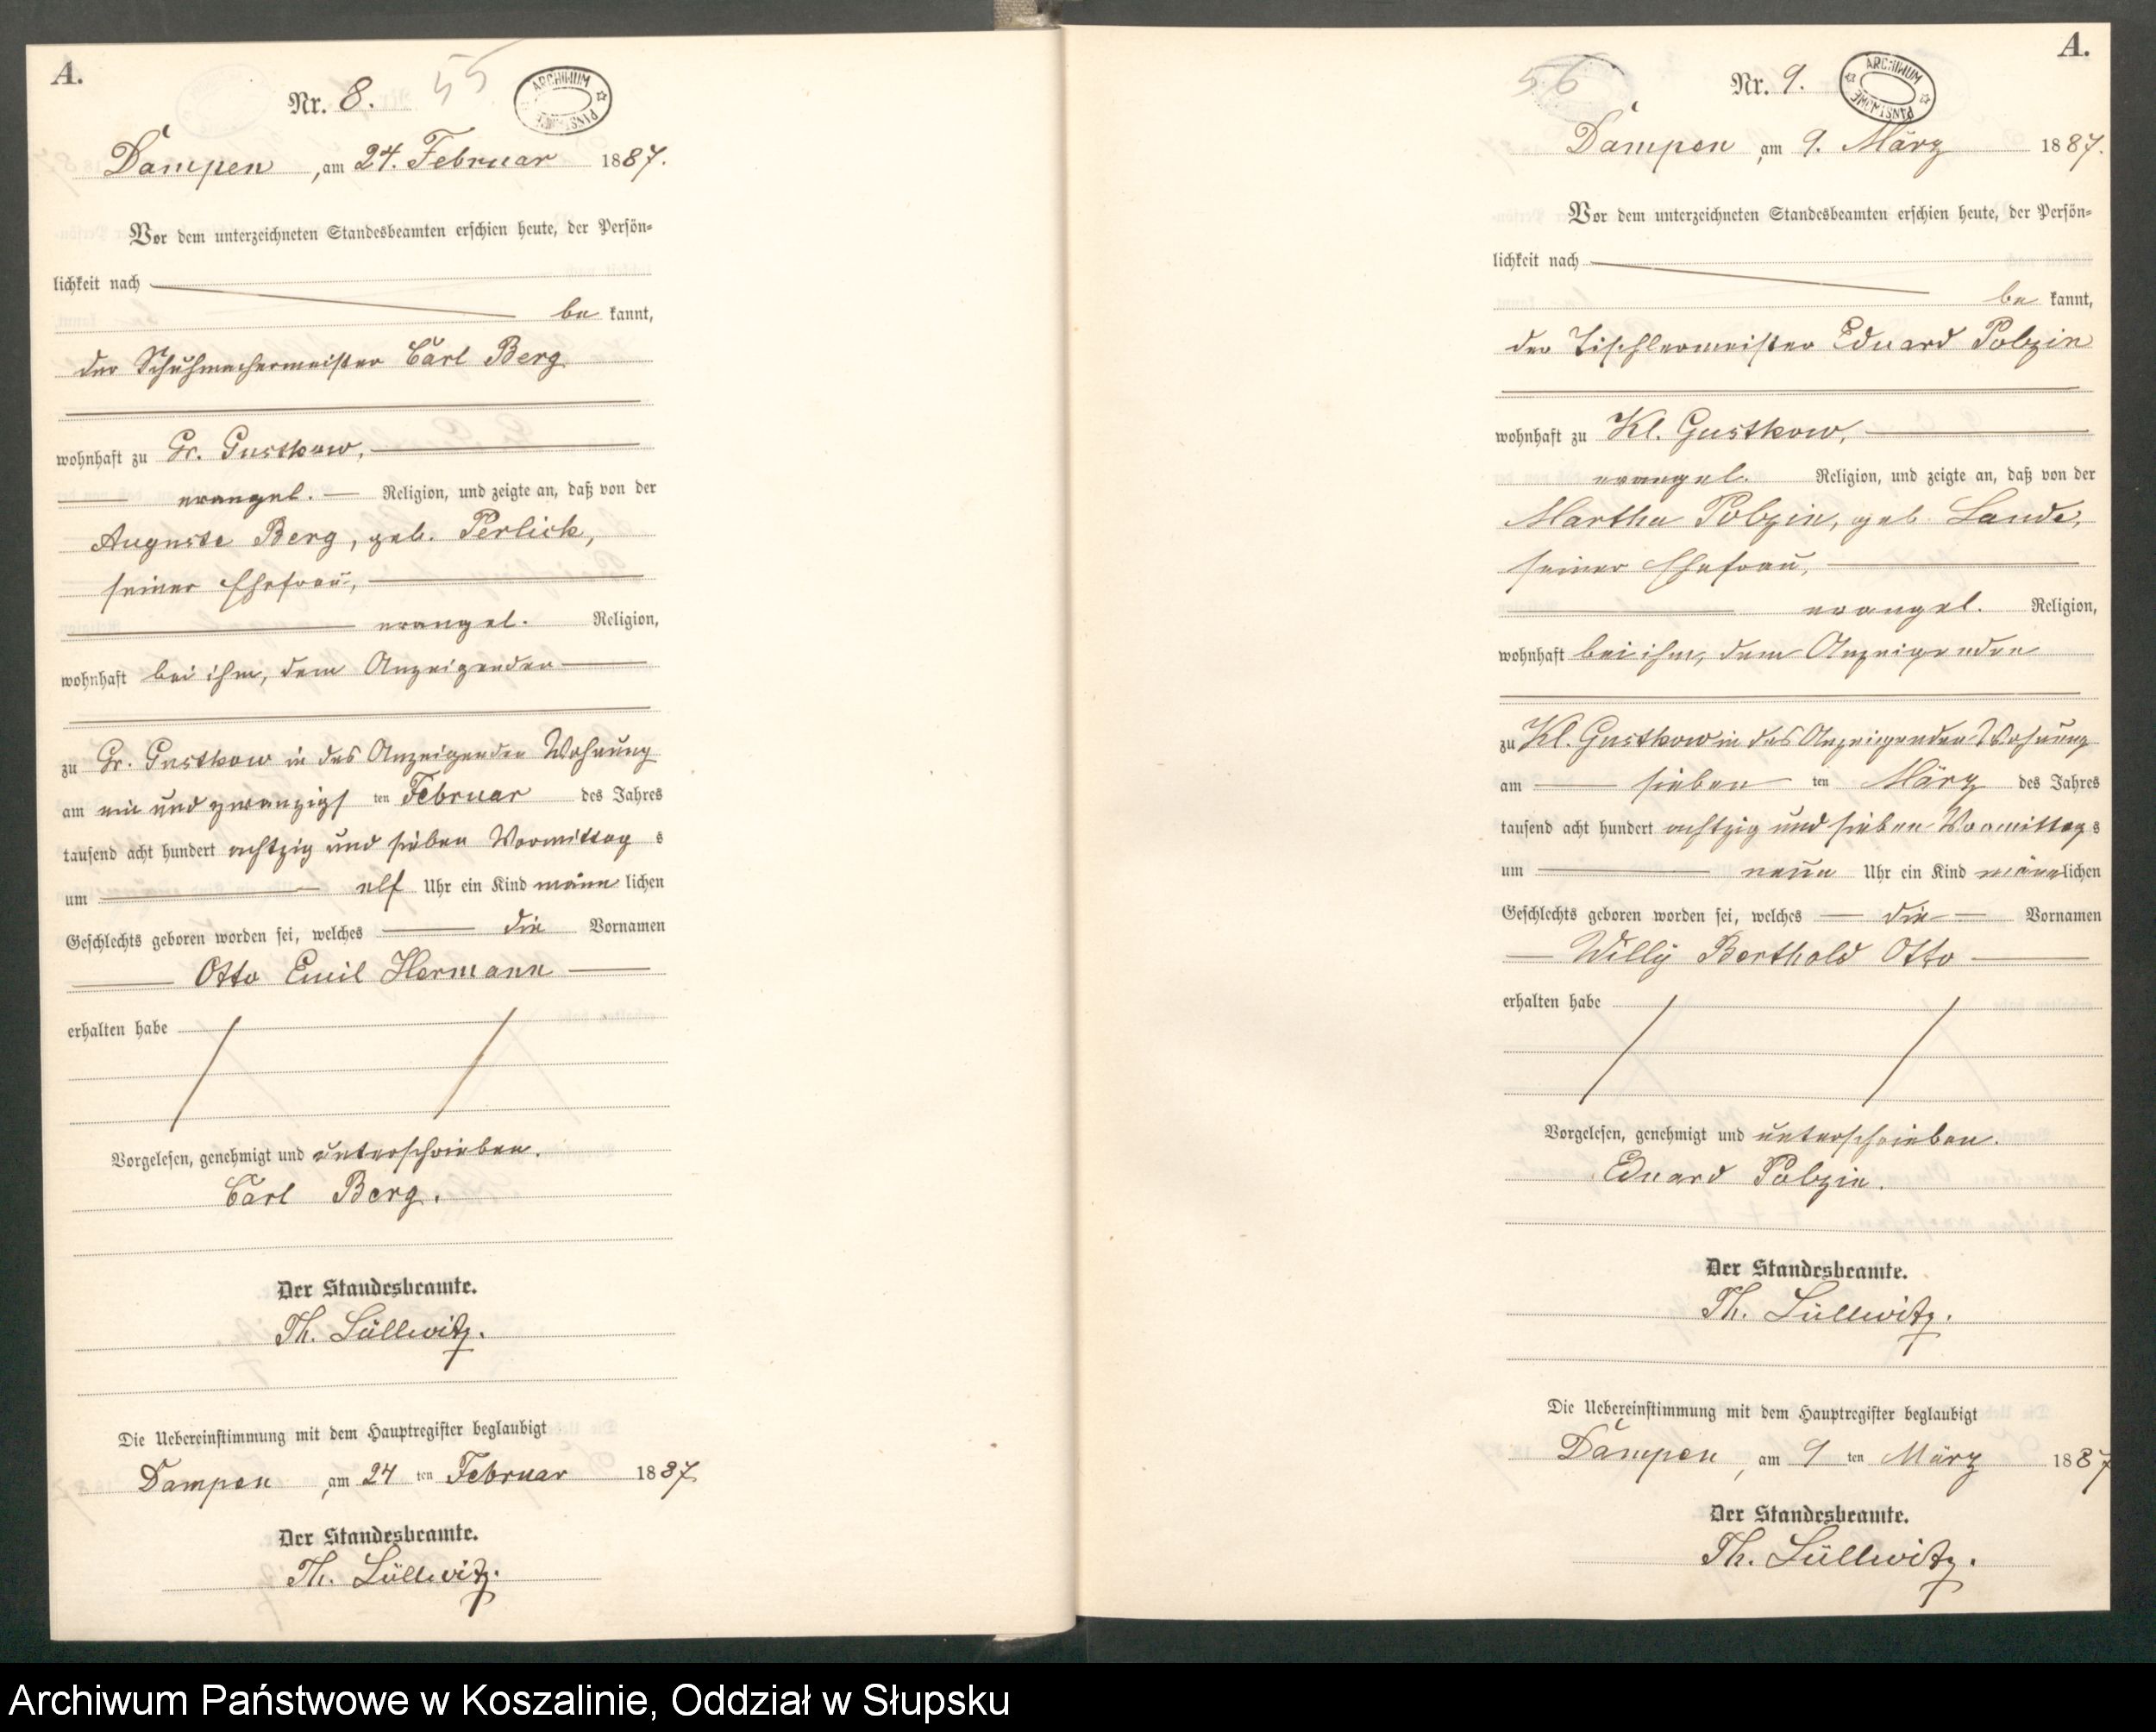 A.
Nr. 8.
55
ARCHIWUM PAŃSTWOWE
Dampen, am 24. Februar 1887.
Vor dem unterzeichneten Standesbeamten erschien heute, der Persön-
lichkeit nach
be kannt,
der Schuhmachermeister Carl Berg
wohnhaft zu Gr. Gustkow,
evangel. Religion, und zeigte an, daß von der
Auguste Berg, geb. Perlick,
seiner Ehefrau,
evangel. Religion,
wohnhaft bei ihm, dem Anzeigenden
zu Gr. Gustkow in des Anzeigenden Wohnung
am ein und zwanzigs ten Februar des Jahres
tausend acht hundert achtzig und sieben Vormittag s
um elf Uhr ein Kind männ lichen
Geschlechts geboren worden sei, welches die Vornamen
Otto Emil Hermann
erhalten habe
Vorgelesen, genehmigt und unterschrieben.
Carl Berg.
Der Standesbeamte.
Th. Lüllwitz.
Die Uebereinstimmung mit dem Hauptregister beglaubigt
Dampen, am 24 ten Februar 1887
Der Standesbeamte.
Th. Lüllwitz.
A.
56
Nr. 9.
ARCHIWUM PAŃSTWOWE
Dampen, am 9. März 1887.
Vor dem unterzeichneten Standesbeamten erschien heute, der Persön-
lichkeit nach
be kannt,
der Tischlermeister Eduard Pobzin
wohnhaft zu Kl. Gustkow,
evangel. Religion, und zeigte an, daß von der
Martha Pobzin, geb. Lande,
seiner Ehefrau,
evangel. Religion,
wohnhaft bei ihm, dem Anzeigenden
zu Kl. Gustkow in des Anzeigenden Wohnung
am sieben ten März des Jahres
tausend acht hundert achtzig und sieben Vormittag s
um neun Uhr ein Kind männ lichen
Geschlechts geboren worden sei, welches die Vornamen
Willy Berthold Otto
erhalten habe
Vorgelesen, genehmigt und unterschrieben.
Eduard Pobzin.
Der Standesbeamte.
Th. Lüllwitz.
Die Uebereinstimmung mit dem Hauptregister beglaubigt
Dampen, am 9 ten März 1887
Der Standesbeamte.
Th. Lüllwitz.
Archiwum Państwowe w Koszalinie, Oddział w Słupsku